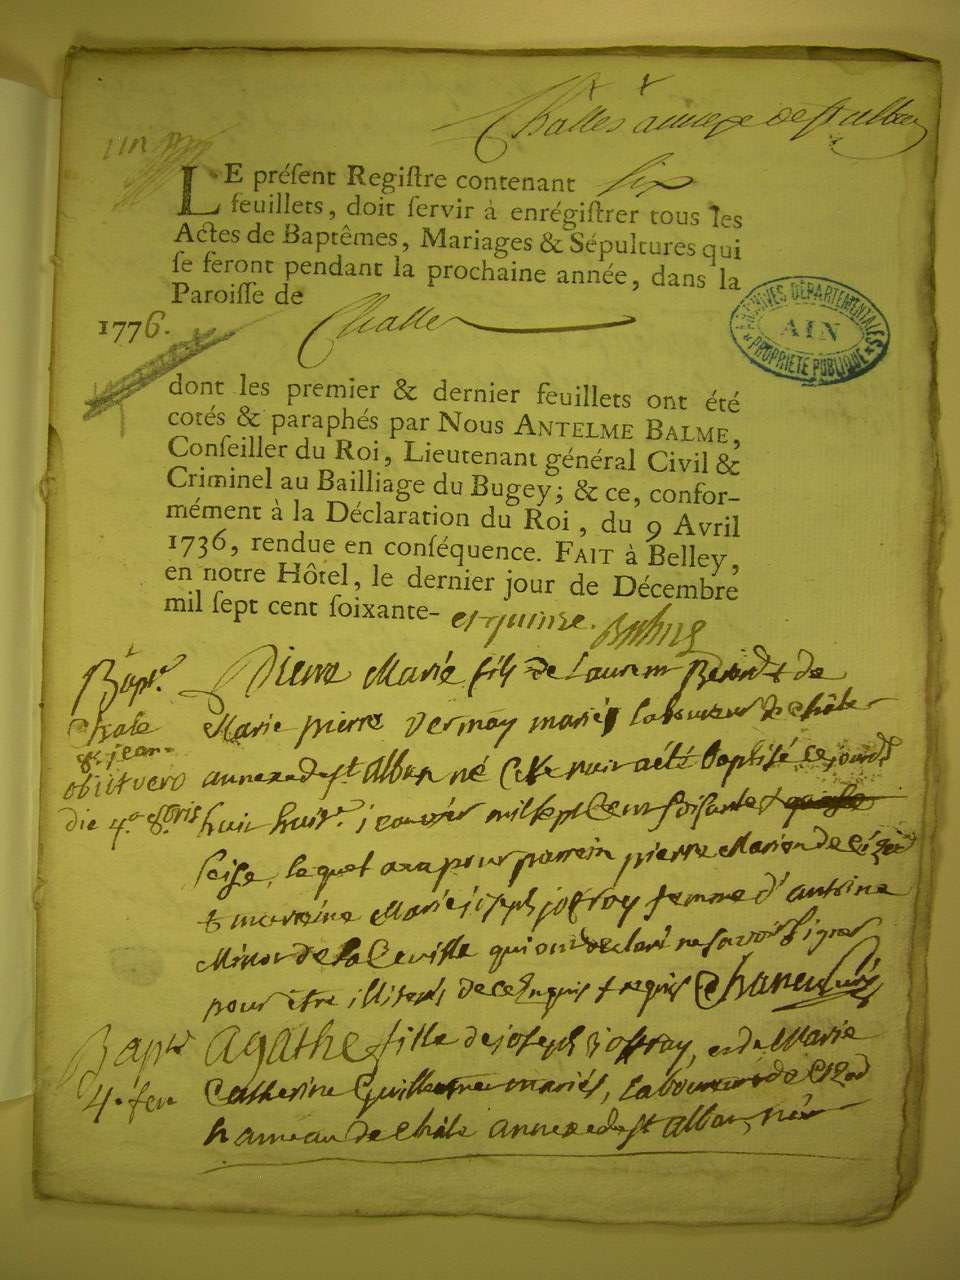 Challes annexe de st alban
LE préſent Regiſtre contenant six
feuillets, doit ſervir à enrégiſtrer tous les
Actes de Baptêmes, Mariages & Sépultures qui
ſe feront pendant la prochaine année, dans la
Paroiſſe de
1776.
Challes
ARCHIVES DÉPARTEMENTALES
AIN
PROPRIÉTÉ PUBLIQUE
dont les premier & dernier feuillets ont été
cotés & paraphés par Nous ANTELME BALME,
Conſeiller du Roi, Lieutenant général Civil &
Criminel au Bailliage du Bugey; & ce, confor-
mément à la Déclaration du Roi, du 9 Avril
1736, rendue en conſéquence. FAIT à Belley,
en notre Hôtel, le dernier jour de Décembre
mil ſept cent ſoixante- et quinze. Balme
Bapt.e
obiit vero
die 4.a 8.bris
Pierre Marie fils de Laurent & de
Marie pierre vermay mariés laboureur de châle
annexe de st Alban né cette nuit a été baptisé ce jourd
huit huit.e janvier mil sept cent soisante &
seise, lequel a eu pour parrein pierre Marion de
& marreine Marie joseph jofray femme d'antoine
de la qui ont declaré ne savoir signer
pour être illiterés de ce enquis & requis
Bapt.e
4.e fevr
Agathe fille de joseph joffray, et de Marie
Catherine mariés, laboureurs de
hameau de châle annexe de st alban, née